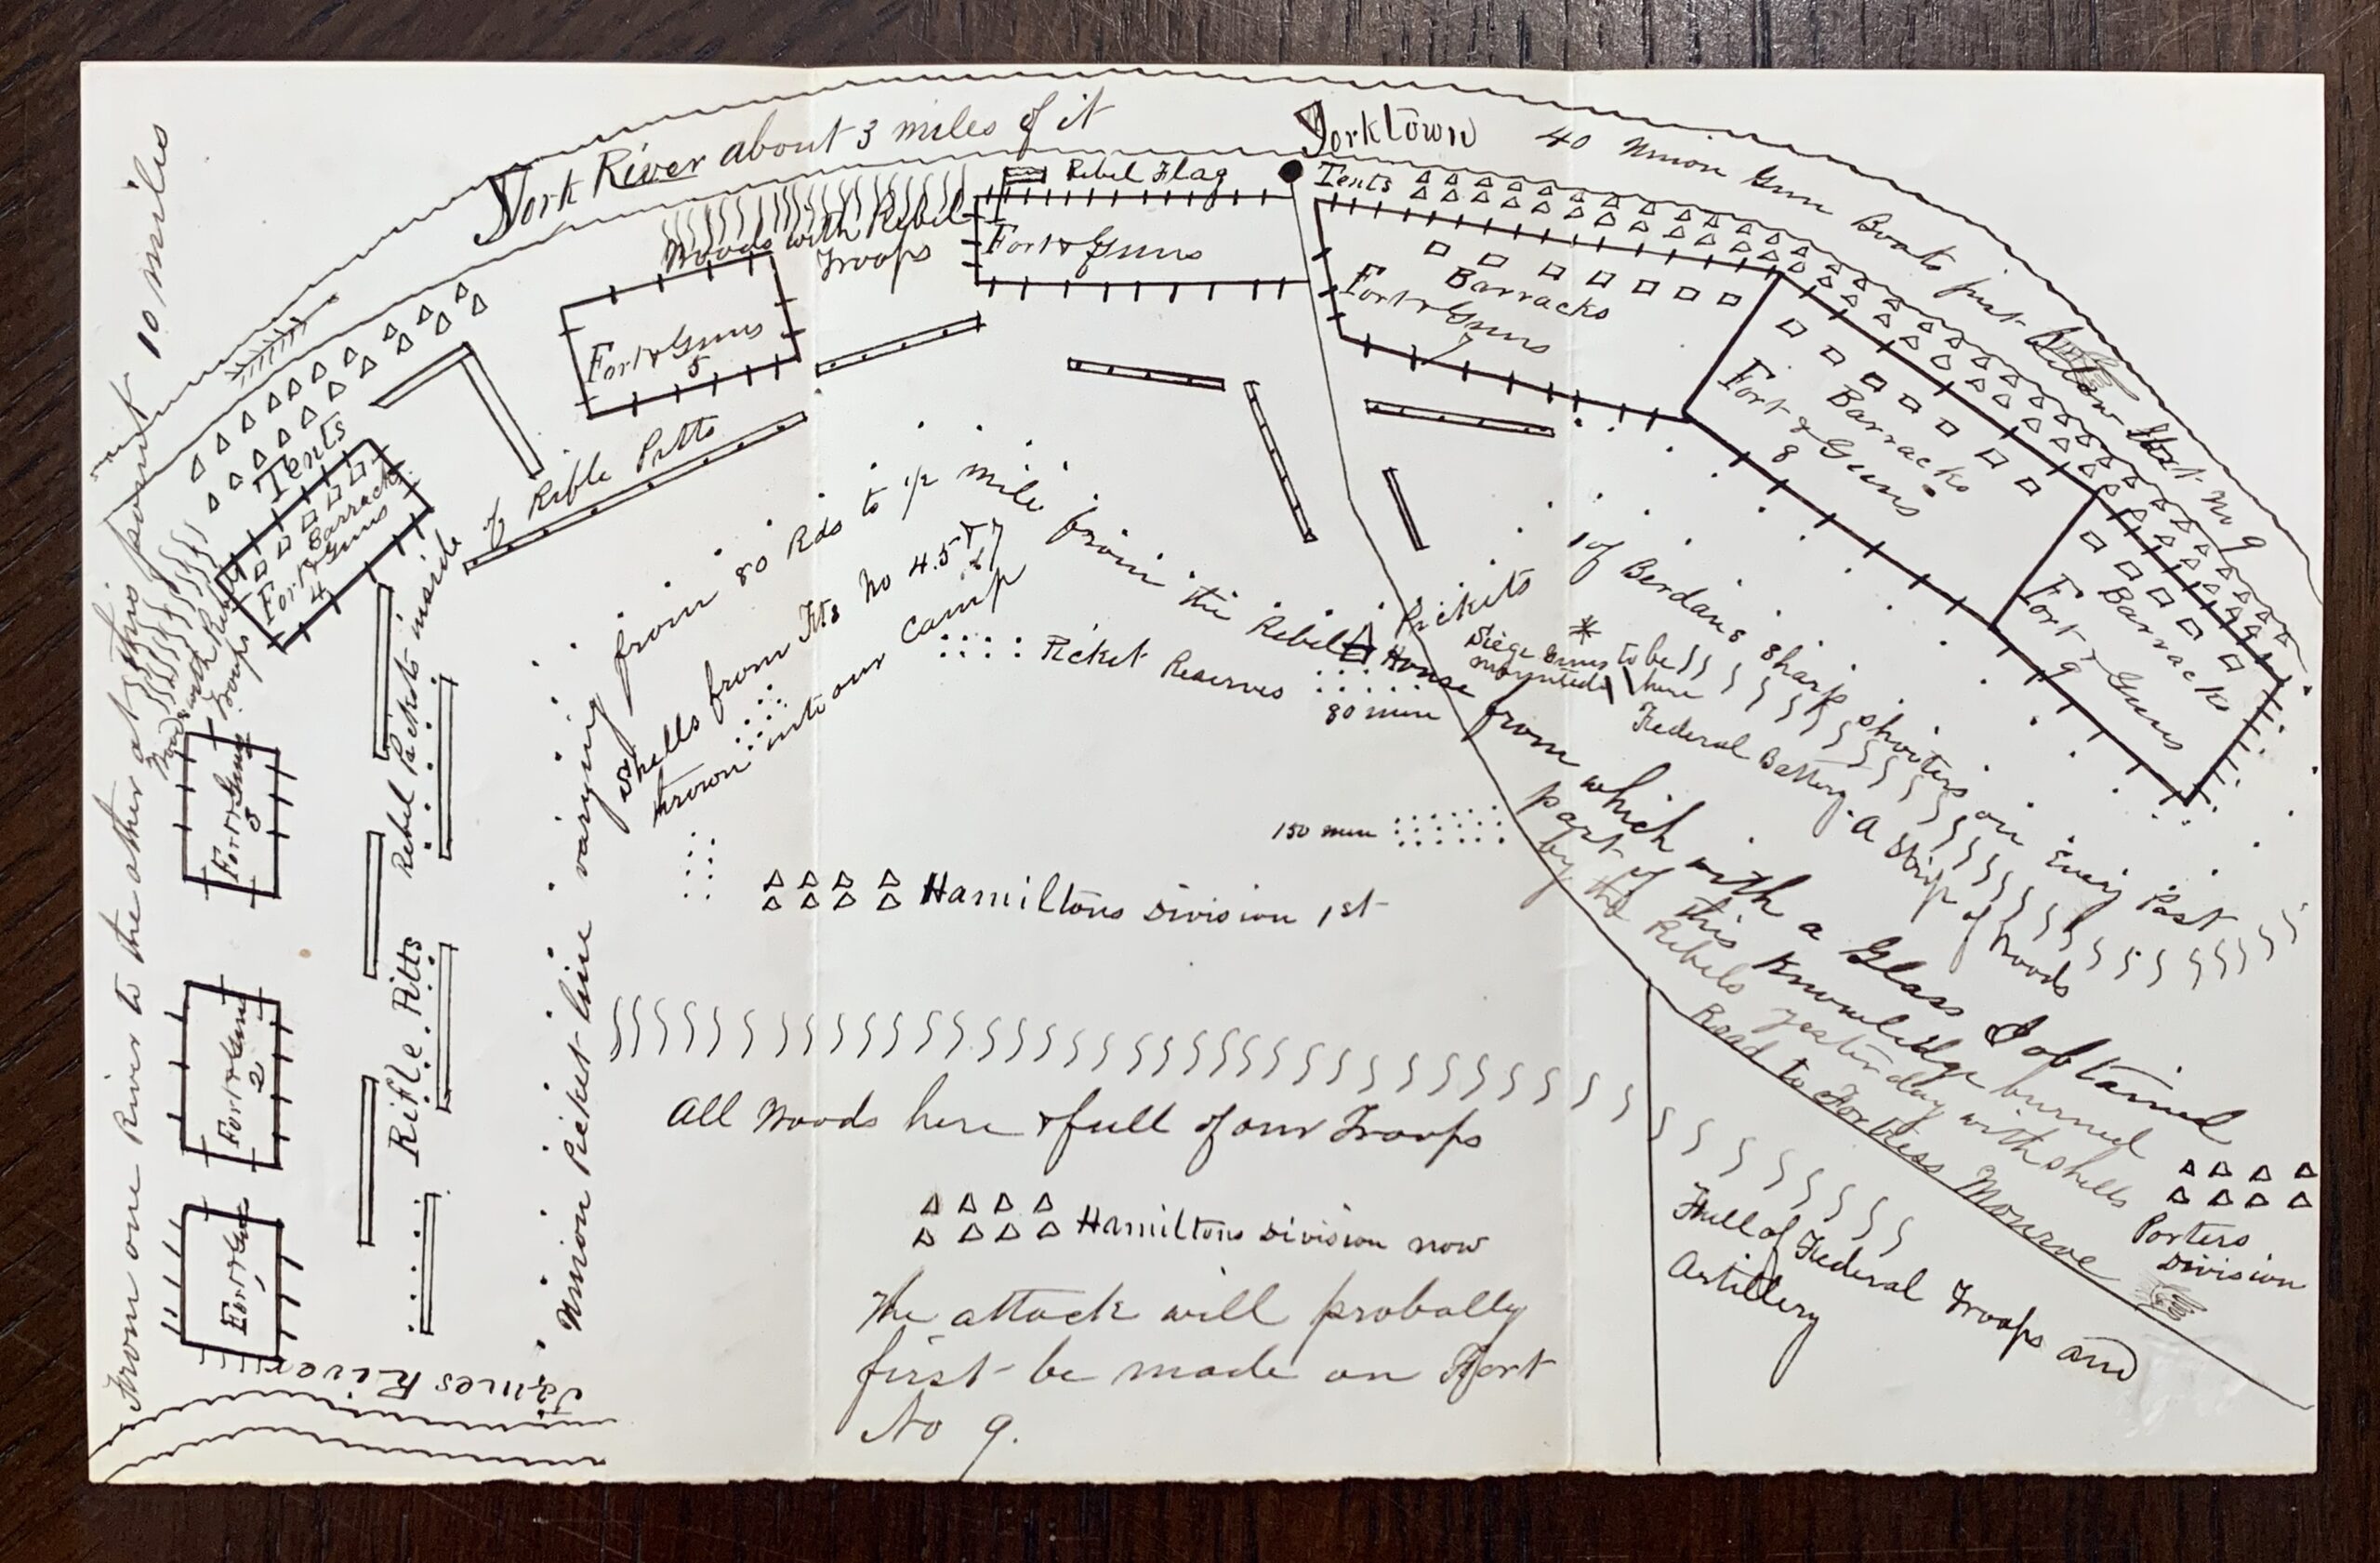 York River about 3 miles of it
Yorktown
40 Union Gun Boats just below Fort No 9
Rebel Flag
Tents
Woods with Rebel
Troops
Fort & Guns
Barracks
Fort & Guns
7
Barracks
Fort & Guns
8
Barracks
Fort & Guns
9
Fort & Guns
5
Tents
Barracks
Fort & Guns
4
Woods with Rebel
Troops
From one River to the other at this point 10 miles
Fort & Guns
3
Fort & Guns
2
Fort & Guns
1
James River
Rifle Pitts
Rebel Pickets inside
of Rifle Pitts
Union Picket line varying from 80 Rds to 1/2 mile from the Rebel Pickets
Shells from Fts No 4.5 & 7
thrown into our Camp
Picket Reserves
80 men
150 men
House from which with a Glass I obtained
part of this knowledge burned
by the Rebels yesterday with shells
Road to Fortress Monroe
1 of Berdans Sharp shooters on Every Post
Siege Guns to be
mounted here
Federal Battery. A Strip of Woods
Hamiltons Division 1st
All Woods here & full of our Troops
Hamiltons Division now
The attack will probally
first be made on Fort
No 9.
Porters
Division
Full of Federal Troops and
Artillery